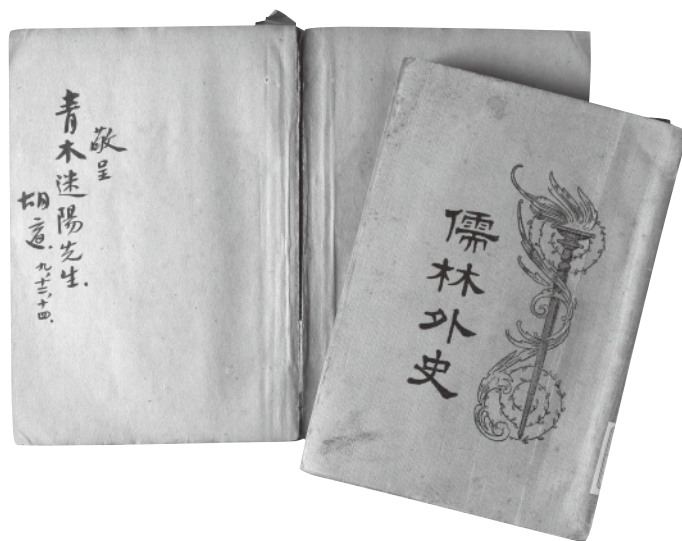 敬呈
青木迷陽先生.
胡適.九、十二、十四.
儒林外史